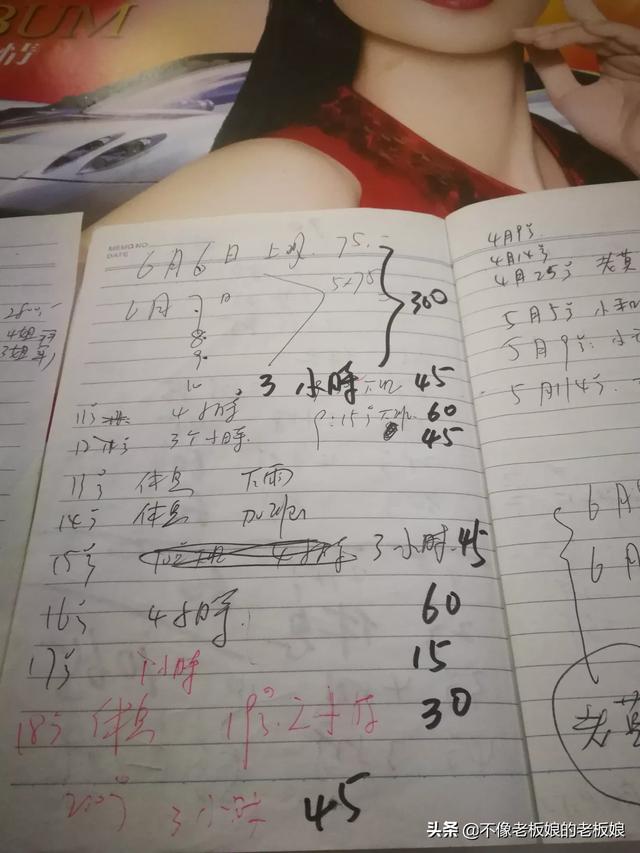 BUM
情
MEMO NO.
DATE
6月6日 上班. 75.-
6月 7日 5×75 300
8.
9.
10. 3 小時 下班 45
11号 4小時 9:15分下班 60
12号 3个小時. 45
13号 休息 下雨
14号 休息
15号 3小时. 45
16号 4小時. 60
17号 1小時 15
18号 休息 19号 2小時 30
20号 3小時 45
280.-
4月9号
4月14号
4月25号 老莫
5月5号 小和
5月9号: 小
5月14号.
6月
6月
老莫
头条 @不像老板娘的老板娘